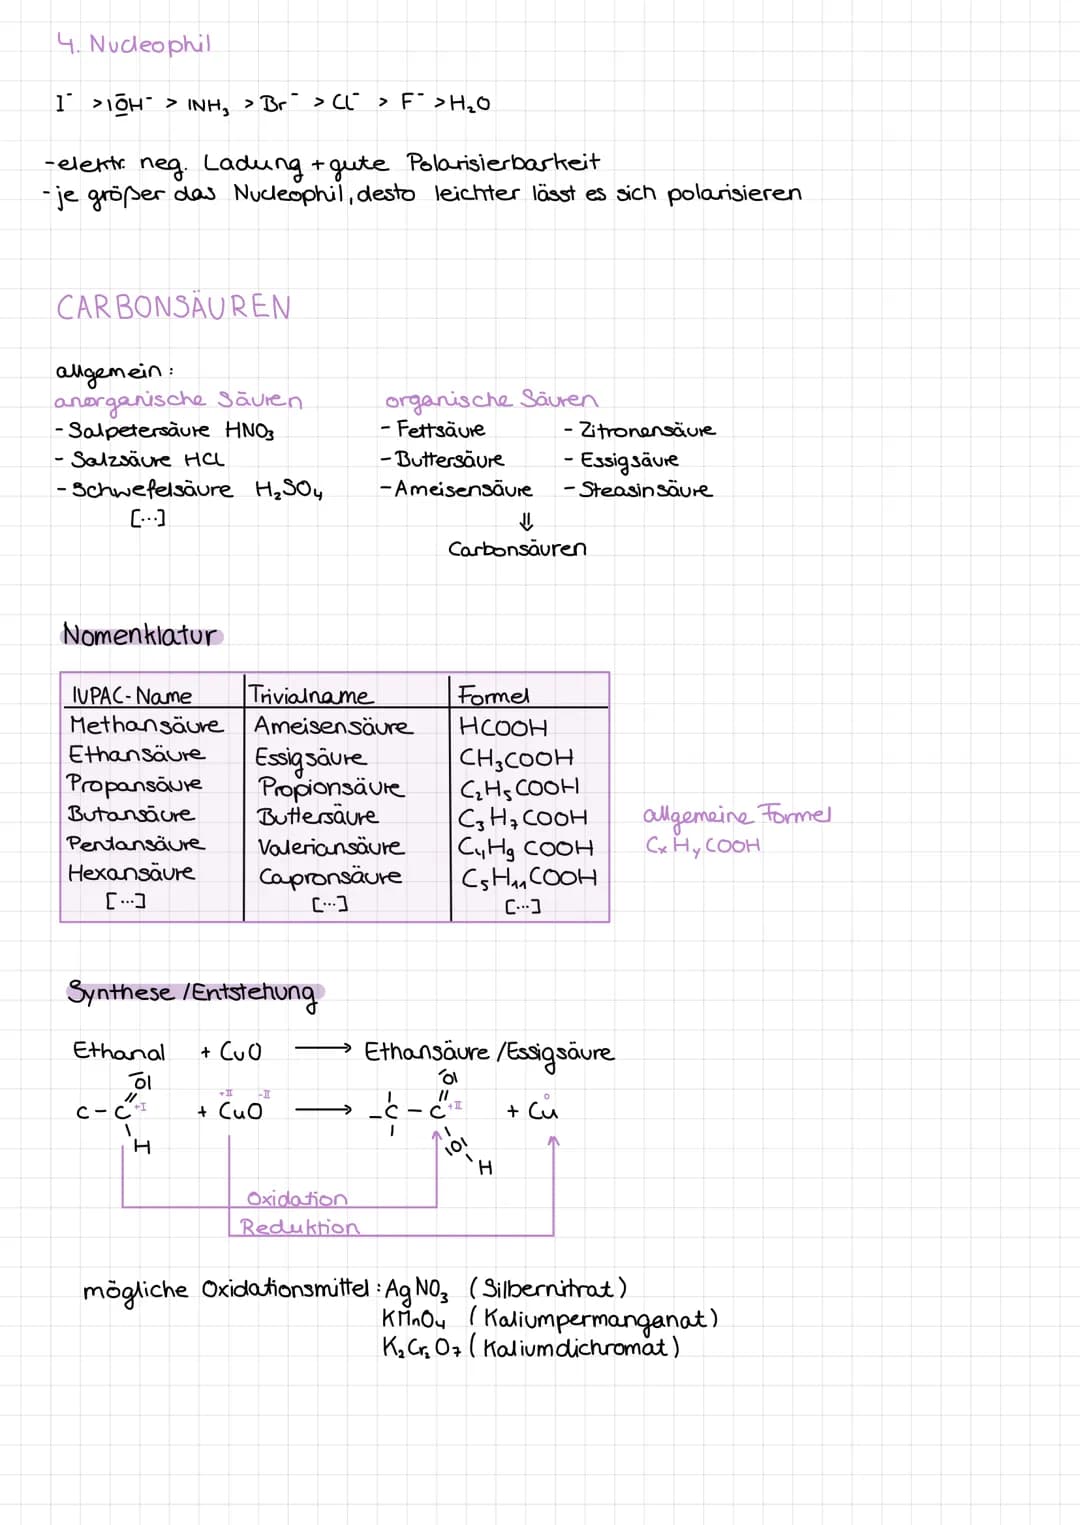 4. Nucleophil
I⁻ > |O̅H⁻ > |NH₃ > Br⁻ > Cl⁻ > F⁻ > H₂O
- elektr. neg. Ladung + gute Polarisierbarkeit
- je größer das Nucleophil, desto leichter lässt es sich polarisieren
CARBONSÄUREN
allgemein:
anorganische Säuren organische Säuren
- Salpetersäure HNO₃ - Fettsäure - Zitronensäure
- Salzsäure HCl - Buttersäure - Essigsäure
- Schwefelsäure H₂SO₄ - Ameisensäure - Steasinsäure
[...] ⇓
Carbonsäuren
Nomenklatur
IUPAC-Name Trivialname Formel
Methansäure Ameisensäure HCOOH
Ethansäure Essigsäure CH₃COOH
Propansäure Propionsäure C₂H₅COOH
Butansäure Buttersäure C₃H₇COOH allgemeine Formel
Pentansäure Valeriansäure C₄H₉COOH CₓHᵧCOOH
Hexansäure Capronsäure C₅H₁₁COOH
[...] [...] [...]
Synthese / Entstehung
Ethanal + CuO ⟶ Ethansäure / Essigsäure
|O̅ |O̅
+II -II
C - C +I + CuO ⟶ - C - C +II + Cu 0
H |O|
H
Oxidation
Reduktion
mögliche Oxidationsmittel: AgNO₃ (Silbernitrat)
KMnO₄ (Kaliumpermanganat)
K₂Cr₂O₇ (Kaliumdichromat)